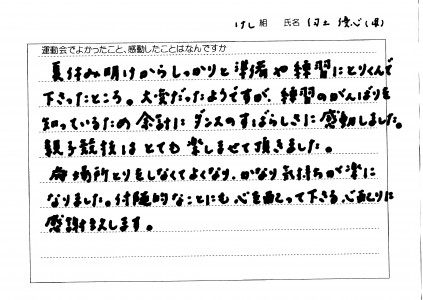 けし組 氏名 (母)
運動会でよかったこと、感動したことはなんですか
夏休み明けからしっかりと準備や練習にとりくんで
下さったところ。大変だったようですが、練習のがんばりを
知っているため余計にダンスのすばらしさに感動しました。
親子競技はとても楽しませて頂きました。
場所とりをしなくてよくなり、かなり気持ちが楽に
なりました。付随的なことにも心を配って下さる心配りに
感謝します。